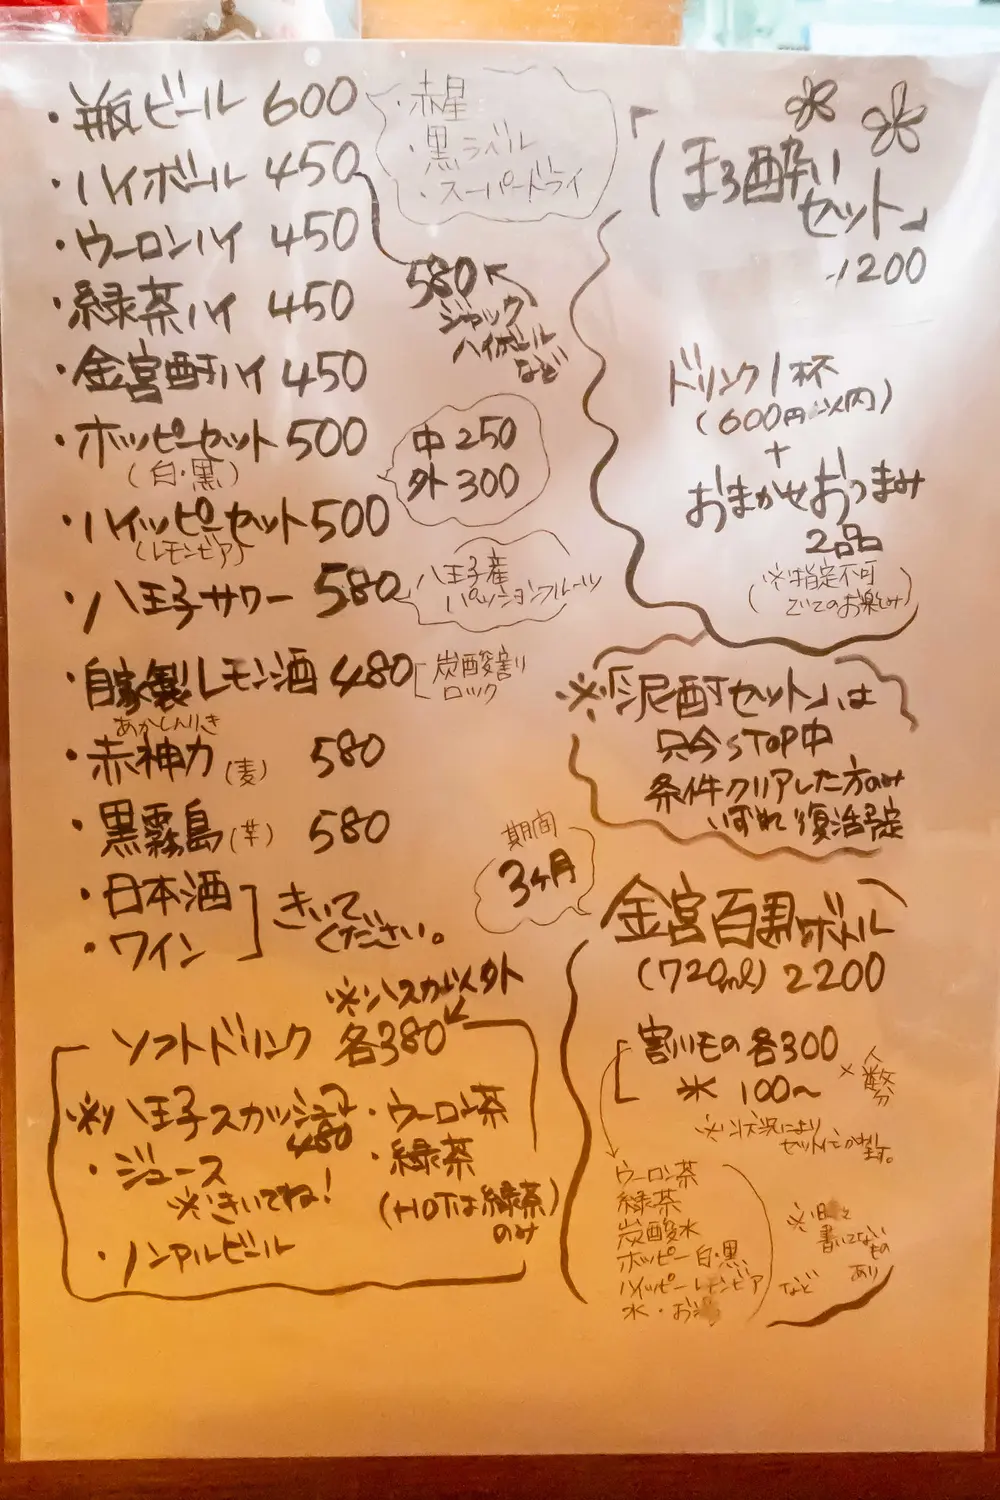 ・瓶ビール 600
・赤星
・黒ラベル
・スーパードライ
・ハイボール 450
580
ジャック
ハイボール
など
・ウーロンハイ 450
・緑茶ハイ 450
・金宮酎ハイ 450
・ホッピーセット 500
(白・黒)
中 250
外 300
・ハイッピーセット 500
(レモンビア)
・八王子サワー 580
八王子産
パッションフルーツ
・自家製レモン酒 480
炭酸割り
ロック
あかしんりき
・赤神力(麦) 580
・黒霧島(芋) 580
・日本酒
・ワイン
きいて
ください。
※ハスカ以外
ソフトドリンク 各380
※八王子スカッシュ
480
・ジュース
※きいてね!
・ノンアルビール
・ウーロン茶
・緑茶
(HOTは緑茶)
のみ
「ほろ酔い
セット」
1200
ドリンク1杯
(600円以内)
+
おまかせおつまみ
2品
(※指定不可
でてのお楽しみ)
※「泥酎セット」は
只今STOP中
条件クリアした方のみ
いずれ復活予定
期間
3ヶ月
金宮百君ボトル
(720ml) 2200
割りもの各300
氷 100〜
×人数分
※状況により
ウーロン茶
緑茶
炭酸水
ホッピー白・黒
ハイッピーレモンビア
水・お
など
書いてない
もの
あり